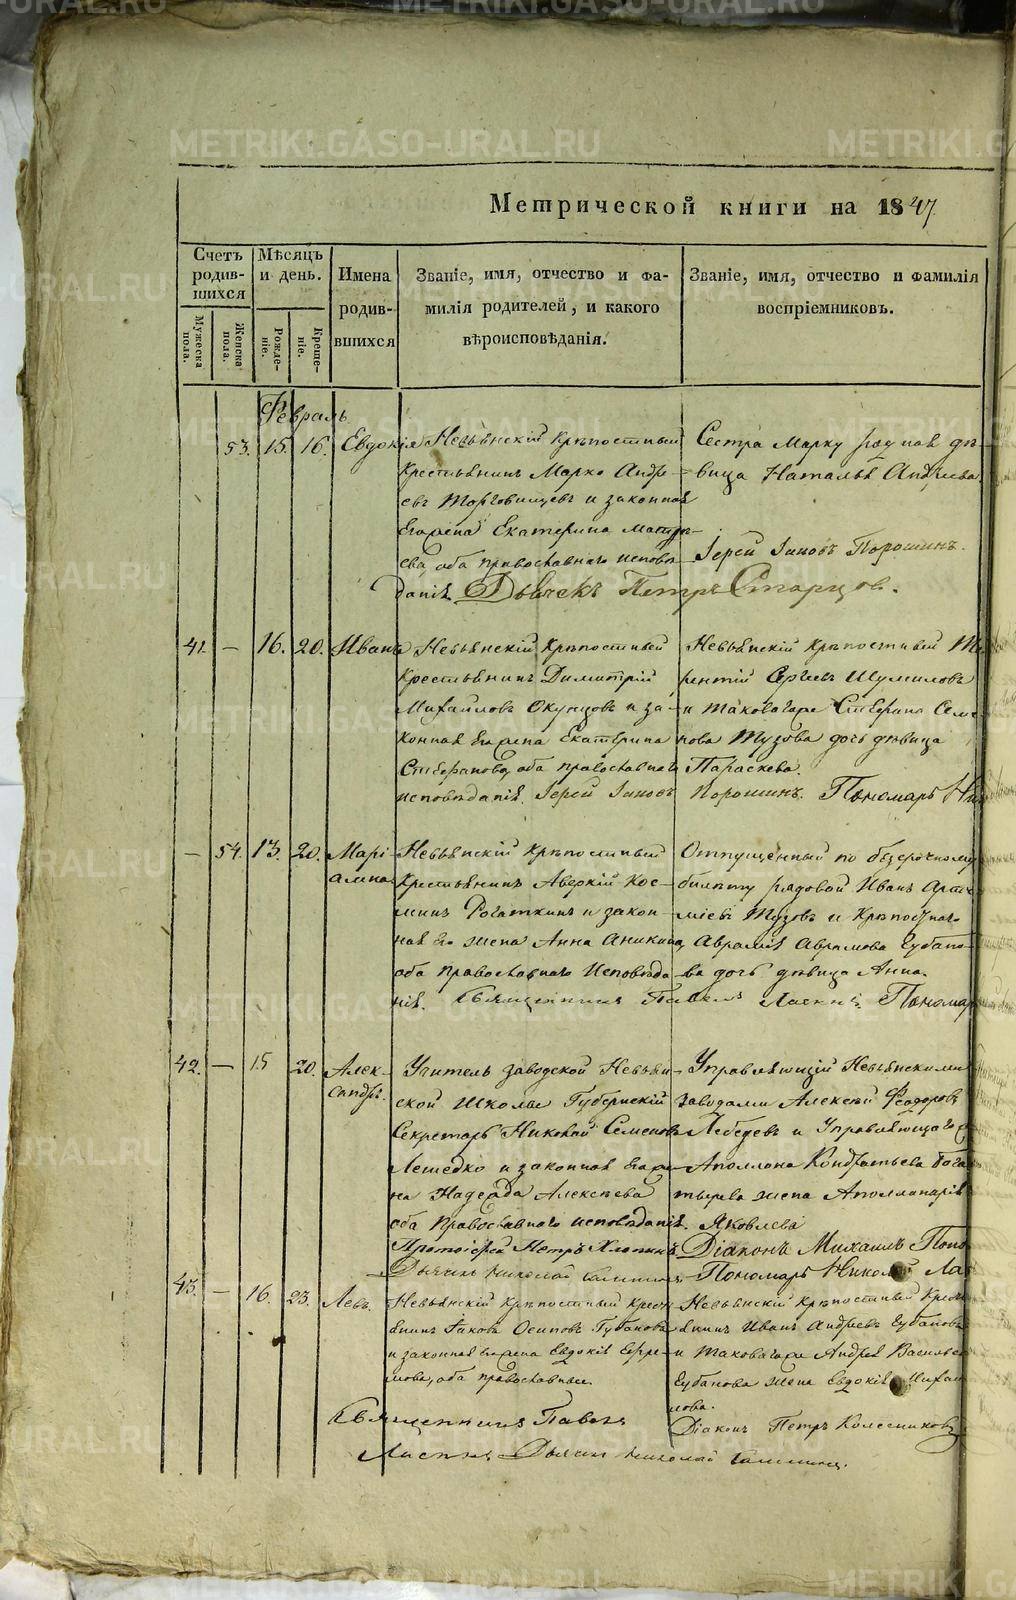 METRIKI.GASO-URAL.RU
Метрической книги на 1847
Счетъ родив-шихся
Мѣсяцъ и день.
Имена родив-вшихся
Званіе, имя, отчество и фа-
милія родителей, и какого
вѣроисповѣданія.
Званіе, имя, отчество и фамилія
воспріемниковъ.
Мужеска пола.
Женска пола.
Рожде-ніе.
Креще-ніе.
Февраль
53. 15. 16. Евдокія
Невьянскій крѣпостный
крестьянинъ Марко Андре-
евъ Торговищевъ и законная
его жена Екатерина
ева, оба православнаго исповѣ-
данія. Дьячекъ Петръ Старцов.
Сестра Марку родная дѣ-
вица Наталья Андреева.
Іерей Іаковъ Порошинъ.
41. — 16. 20. Иванъ
Невьянскій крѣпостный
крестьянинъ Димитрій
Михайловъ Окунцовъ и за-
конная его жена Екатерина
Стефанова, оба православнаго
исповѣданія. Іерей Іаковъ Порошинъ. Пономарь
Невьянскій крѣпостный Те-
рентій Сергѣевъ Шумиловъ
и таковагоже Стефана Семе-
нова Тузова дочь дѣвица
Параскева.
— 54. 13. 20. Марі-
амна
Невьянскій крѣпостный
крестьянинъ Аверкій Кос-
минъ Рогаткинъ и закон-
ная его жена Анна Аникина,
оба православнаго исповѣда-
нія. Священникъ Павелъ Ляпинъ. Пономарь
Отпущенный по безсрочному
билету рядовой Иванъ Арте-
міевъ Тузовъ и крѣпостнаго
Аврамія Аврамова Губано-
ва дочь дѣвица Анна.
42. — 15 20. Алек-
сандръ.
Учитель заводской Невьян-
ской школы Губернскій
Секретарь Николай Семеновъ
Лешедко и законная его же-
на Надежда Алексѣева
оба православнаго исповѣданія.
Протоіерей Петръ Хлопинъ.
Дьячекъ Николай
Управляющій Невьянскими
заводами Алексѣй Феодоровъ
Лебедевъ и Управляющаго
Аполлона Кондратьева Бога-
тырева жена Аполлинарія
Яковлева
Діаконъ Михаилъ Попо
Пономарь Николай
43. — 16. 23. Левъ.
Невьянскій крѣпостный крест
янинъ Іаковъ Осиповъ Губановъ
и законная его жена Евдокія Ефре-
мова, оба православные.
Священникъ Павелъ
Ляпинъ Дьячекъ Николай
Невьянскій крѣпостный крест
янинъ Иванъ Андреевъ Губановъ
и таковагоже Андрея Васильева
Губанова жена Евдокія Михай
лова.
Діаконъ Петръ Колесниковъ